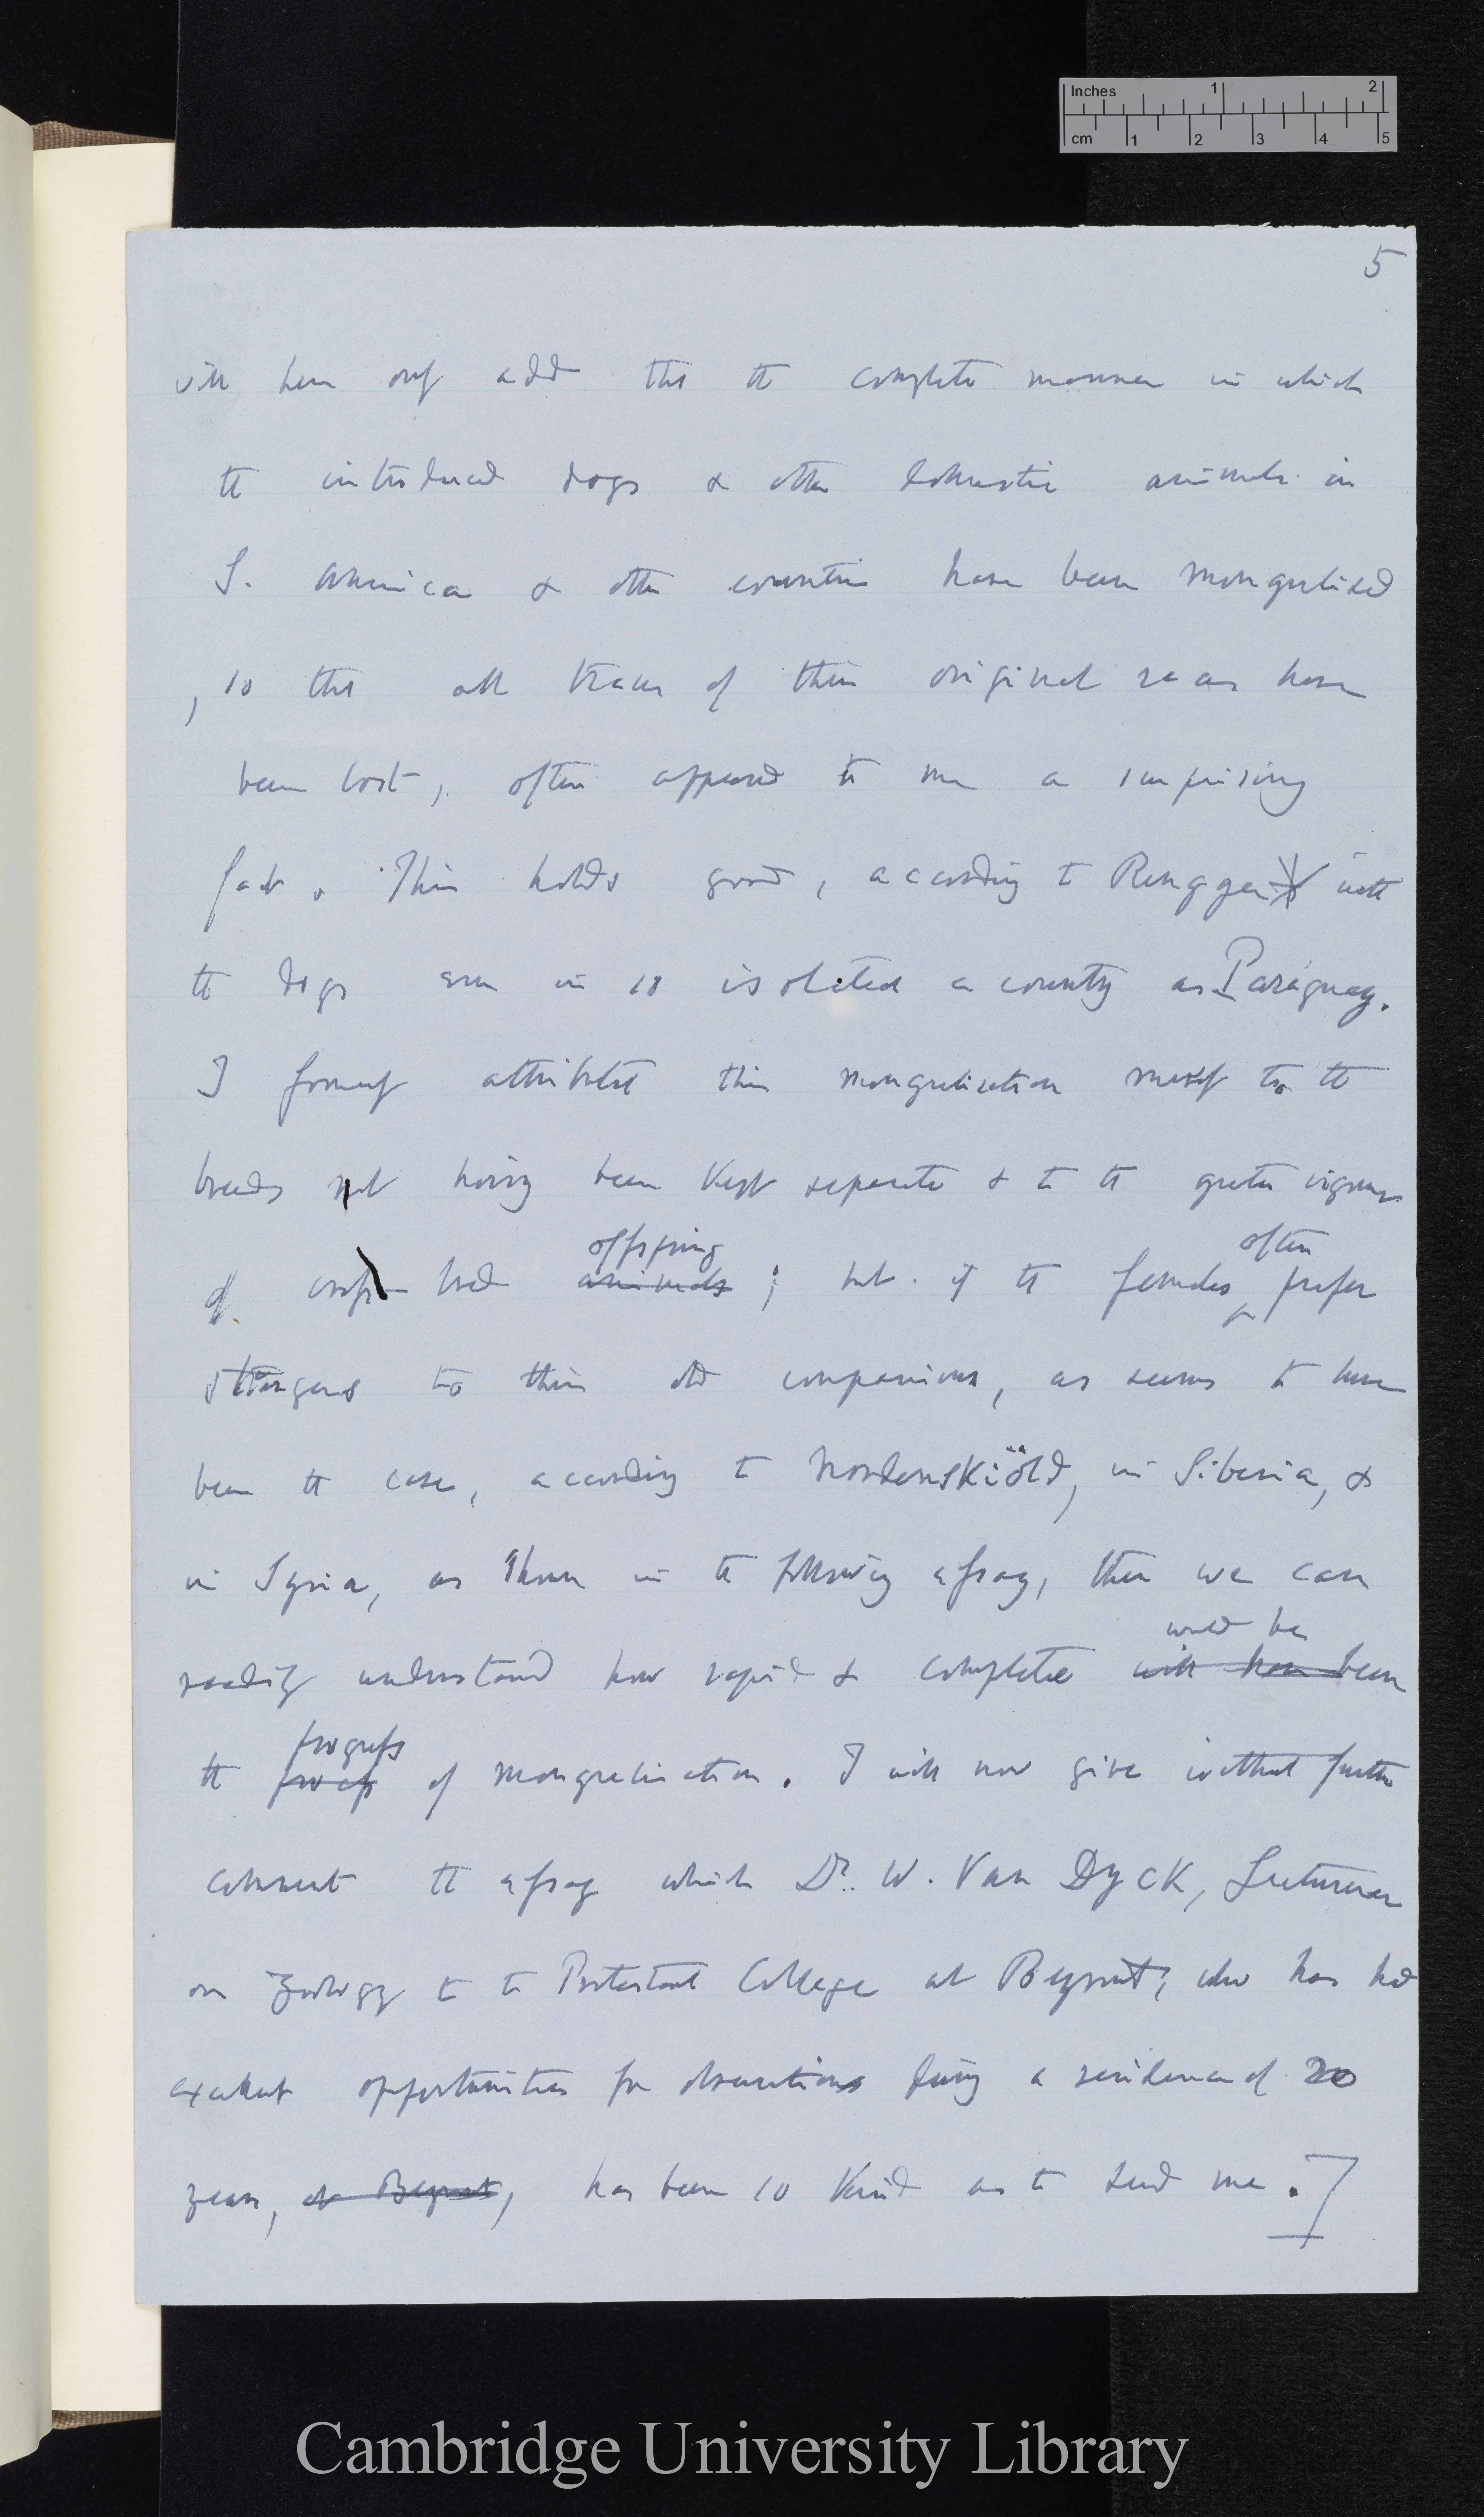 Inches 1 2
cm 1 2 3 4 5
5
will here only add that the complete manner in which
the introduced dogs & other domestic animals in
S. America & other countries have been mongrelised
, so that all traces of their original races have
been lost, often appeared to me a surprising
fact. This holds good, according to Rengger with
the dogs even in so isolated a country as Paraguay.
I formerly attributed this mongrelisation mainly to the
breeds not having been kept separate & to the greater vigour
offspring often
of cross bred animals ; but if the females prefer
strangers to their old companions, as seems to have
been the case, according to Nordenskiöld, in Siberia, &
in Syria, as shown in the following essay, then we can
would be
readily understand how rapid & complete will have been
progress
the process of mongrelisation. I will now give without further
comment the essay which Dr. W. Van Dyck, Lecturer
on Zoology to the Protestant College at Beyrout, who has had
excellent opportunities for observations during a residence of 20
years, at Beyrout, has been so kind as to send me.
Cambridge University Library